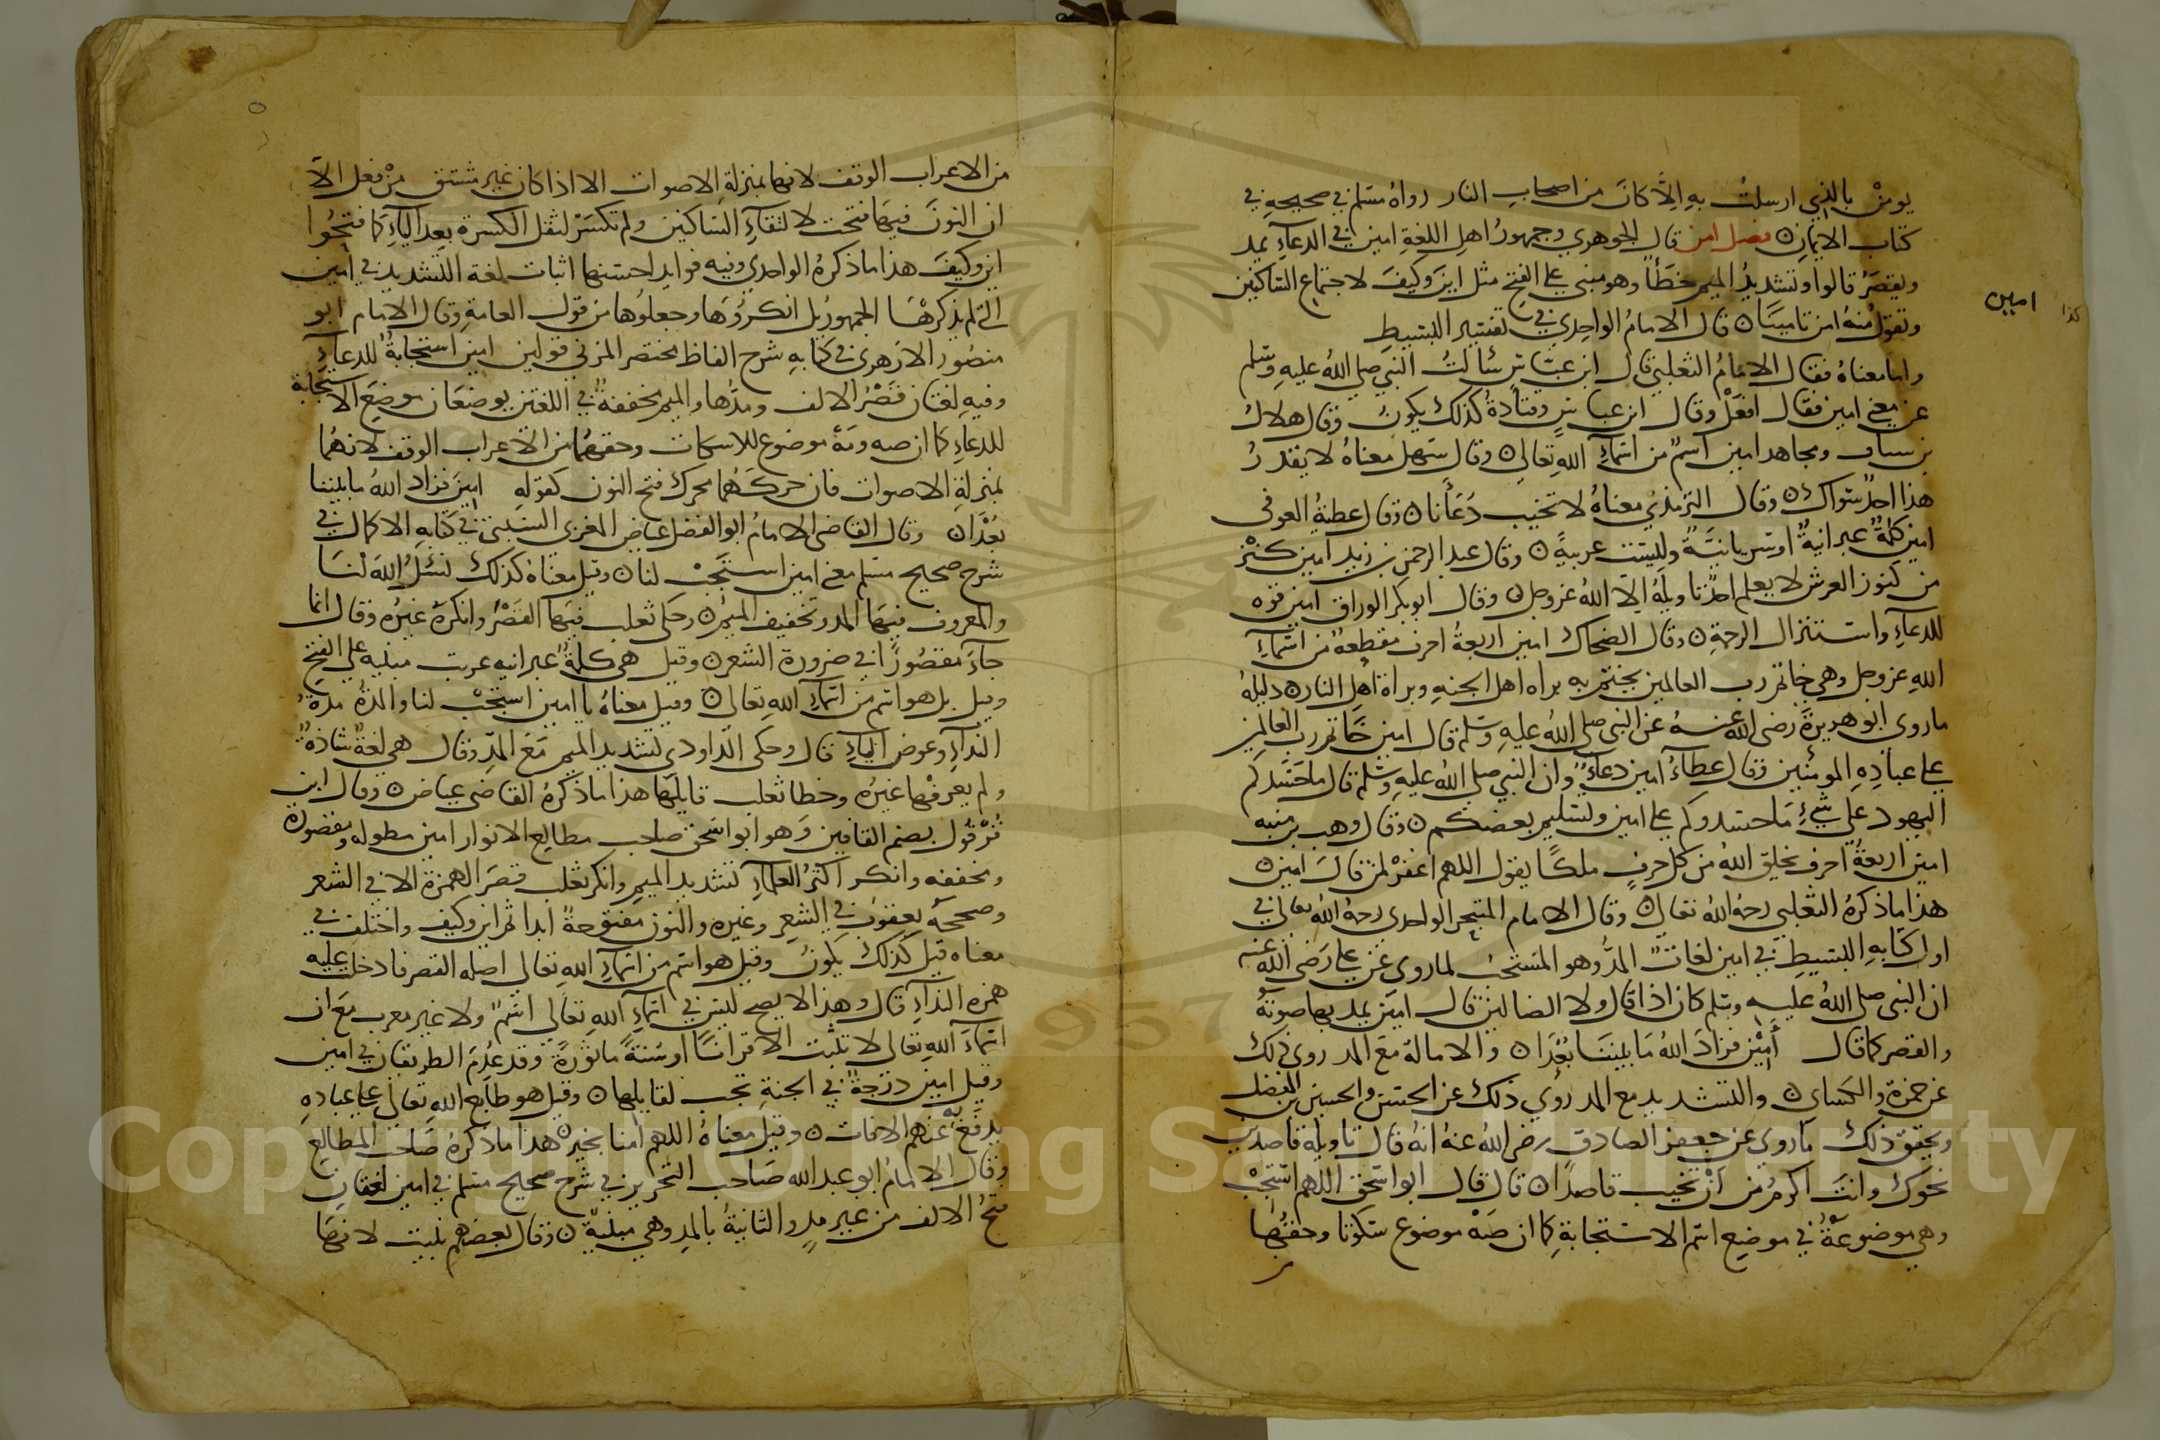 يومن بالذي ارسلت به الا كان من اصحاب النار رواه مسلم في صحيحه في
كتاب الايمان فصل امن قال الجوهري وجمهور اهل اللغة امين في الدعاء يمد
ويقصر قالوا وتشديد الميم خطأ وهو مبني على الفتح مثل اين وكيف لاجتماع الساكنين
وتقول منه امن تامينا قال الامام الواحدي في تفسير البسيط
واما معناه فقال الامام الثعلبي قال ابن عباس سئالت النبي صلى الله عليه وسلم
عن معنى امين فقال افعل وقال ابن عباس وقتادة كذلك يكون وقال هلال
بن يساف ومجاهد امين اسم من اسماء الله تعالى وقال سهل معناه لا يقدر
هذا احد سواك وقال الترمذي معناه لا تخيب دعأنا وقال عطية العوفى
امين كلمة عبرانية او سريانية وليست عربية وقال عبد الرحمن بن زيد امين كنز
من كنوز العرش لا يعلم احد تاويله الا الله عز وجل وقال ابو بكر الوراق امين قوه
للدعاء واستنزال الرحمة وقال الضحاك امين اربعة احرف مقطعه من اسماء
الله عز وجل وهي خاتم رب العالمين يختم به براه اهل الجنه وبراة اهل النار دليله
ما روى ابو هريرة رضى الله عنه عن النبي صلى الله عليه وسلم قال امين خاتم رب العالمين
على عباده المومنين وقال عطاء امين دعاء وان النبي صلى الله عليه وسلم قال ما حسدكم
اليهود على شيء ما حسدوكم على امين وتسليم بعضكم وقال وهب بن منبه
امين اربعة احرف يخلق الله من كل حرف ملكا يقول اللهم اغفر لمن قال امين
هذا ما ذكره الثعلبي رحمه الله تعالى وقال الامام المتبحر الواحدى رحمه الله تعالى في
اول كتابه البسيط في امين لغات المد وهو المستحب لما روى عن علي رضى الله عنه
ان النبي صلى الله عليه وسلم كان اذا قال ولا الضالين قال امين يمد بها صوته
والقصر كما قال أمين فزاد الله ما بيننا بعدا والامالة مع المد روى ذلك
عن حمزة والكسائ والتشديد مع المد روي ذلك عن الحسن والحسين بن الفضل
ويحقق ذلك ما روى عن جعفر الصادق رضى الله عنه انه قال تاويله قاصدين
نحوك وانت اكرم من ان تخيب قاصدا قال قال ابو اسحق اللهم استجب
وهي موضوعة في موضع اسم الاستجابة كما ان صه موضوع سكوتا وحقها
امين
كذا
من الاعراب الوقف لانها بمنزلة الاصوات الا اذا كان غير مشتق من فعل الا
ان النون فيها فتحت لالتقاء الساكنين ولم تكسر لثقل الكسرة بعد الياء كما فتحوا
اين وكيف هذا ما ذكره الواحدي وفيه فوايد احسنها اثبات لغة التشديد في امين
التي لم يذكرها الجمهور بل انكروها وجعلوها من قول العامة وقال الامام ابو
منصور الازهرى في كتابه شرح الفاظ مختصر المزني قولين امين استجابة للدعاء
وفيه لغتان قصر الالف ومدها والميم مخففة في اللغتين يوضعان موضع الاستجابة
للدعاء كما ان صه ومه موضوع للاسكات وحقهما من الاعراب الوقف لانهما
بمنزلة الاصوات فان حركتهما محرك فتح النون كقوله امين فزاد الله ما بيننا
بعدا وقال القاضى الامام ابو الفضل عياض المغربى السبتى في كتابه الاكمال في
شرح صحيح مسلم معنى امين استجب لنا وقيل معناه كذلك نسئل الله لنا
والمعروف فيها المد وتخفيف الميم وحكى ثعلب فيها القصر وانكره غيره وقال انما
جاء مقصورا في ضرورة الشعر وقيل هي كلمة عبرانيه عربت مبنيه على الفتح
وقيل بل هو اسم من اسماء الله تعالى وقيل معناه يا امين استجب لنا والمدة مدة
النداء وعوض الياء قال وحكى الداودي تشديد الميم مع المد وقال هي لغة شاذة
ولم يعرفها غيره وخطا ثعلب قايلها هذا ما ذكره القاضى عياض وقال ابن
قرقول بضم القافين وهو ابو اسحق صاحب مطالع الانوار امين مطوله ومقصورة
ومخففه وانكر اكثر العلماء تشديد الميم وانكر ثعلب قصر الهمزة الا في الشعر
وصححه يعقوب في الشعر وغيره والنون مفتوحة ابدا مثل اين وكيف واختلف في
معناه قيل كذلك يكون وقيل هو اسم من اسماء الله تعالى اصله القصر فادخل عليه
همزه النداء قال وهذا لا يصح ليس في اسماء الله تعالى اسم ولا غير معرب مع ان
اسماء الله تعالى لا تثبت الا قرانا او سنة ماثورة وقد عدم الطريقان في امين
وقيل امين درجة في الجنة تجب لقايلها وقيل هو طابع الله تعالى على عباده
يدفع به عنهم الافات وقيل معناه اللهم امنا بخير هذا ما ذكره صاحب المطالع
وقال الامام ابو عبد الله صاحب التحرير في شرح صحيح مسلم في امين لغتان
فتح الالف من غير مد والثانية بالمد وهي مبنية وقال بعضهم بنيت لانها
Copyright © King Saud University
1957